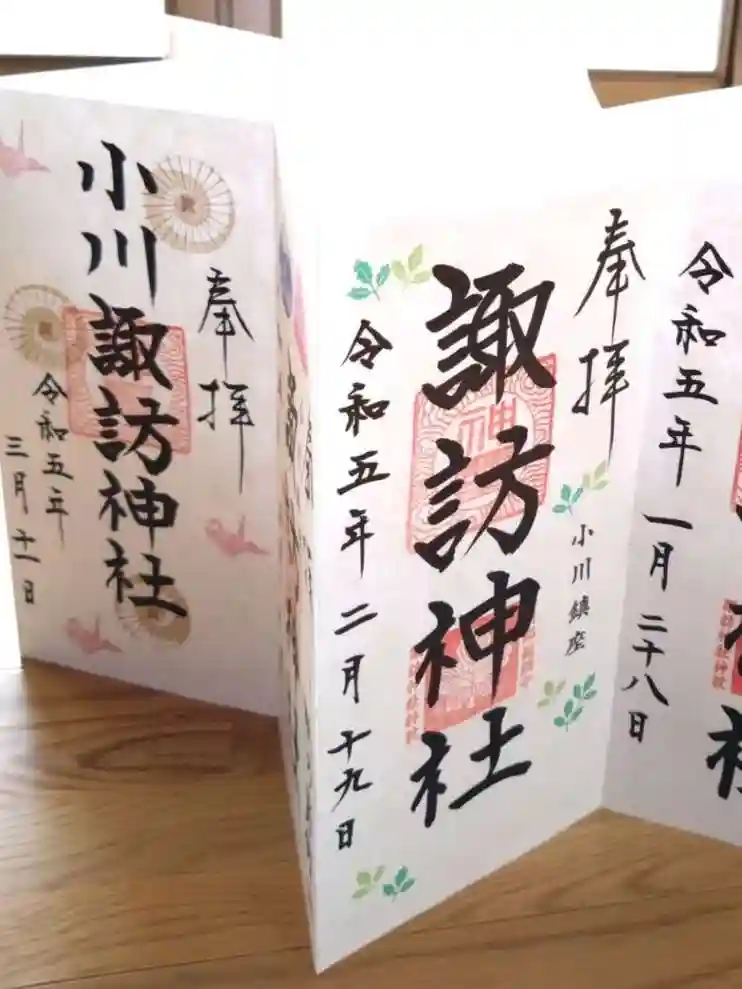 令和五年
一月二十八日
奉拝
諏訪神社
小川鎮座
令和五年
二月十九日
奉拝
小川諏訪神社
令和五年
三月十一日